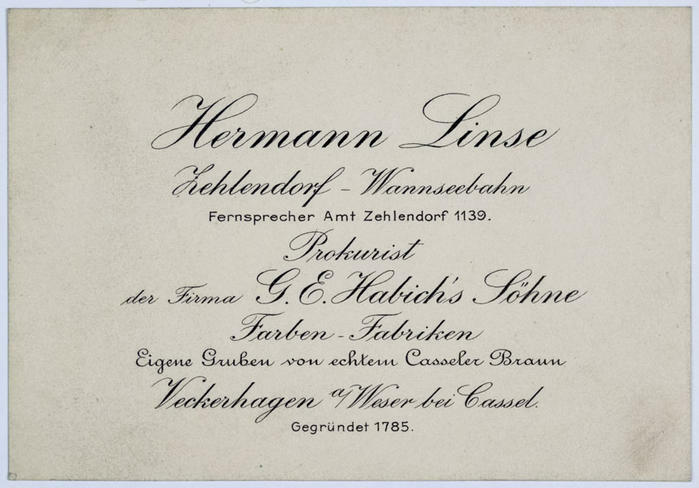 Hermann Linse
Zehlendorf - Wannseebahn
Fernsprecher Amt Zehlendorf 1139.
Prokurist
der Firma G. E. Habich's Söhne
Farben - Fabriken
Eigene Gruben von echtem Casseler Braun
Veckerhagen a/Weser bei Cassel.
Gegründet 1785.